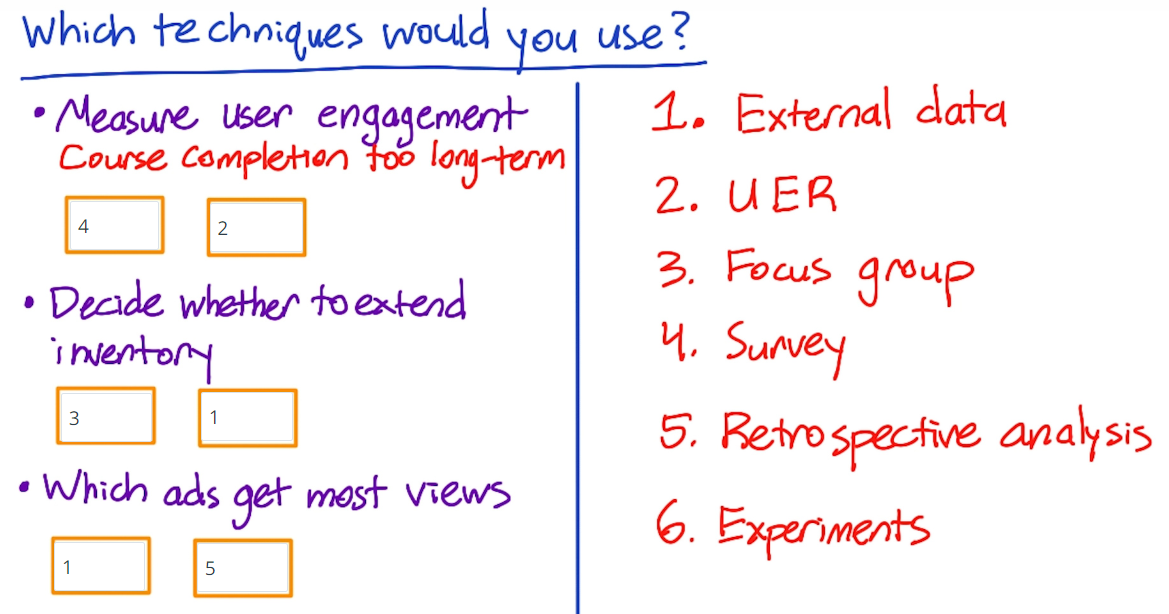 Which techniques would you use?
• Measure user engagement
Course completion too long-term
4 2
• Decide whether to extend
inventory
3 1
• Which ads get most views
1 5
1. External data
2. UER
3. Focus group
4. Survey
5. Retrospective analysis
6. Experiments